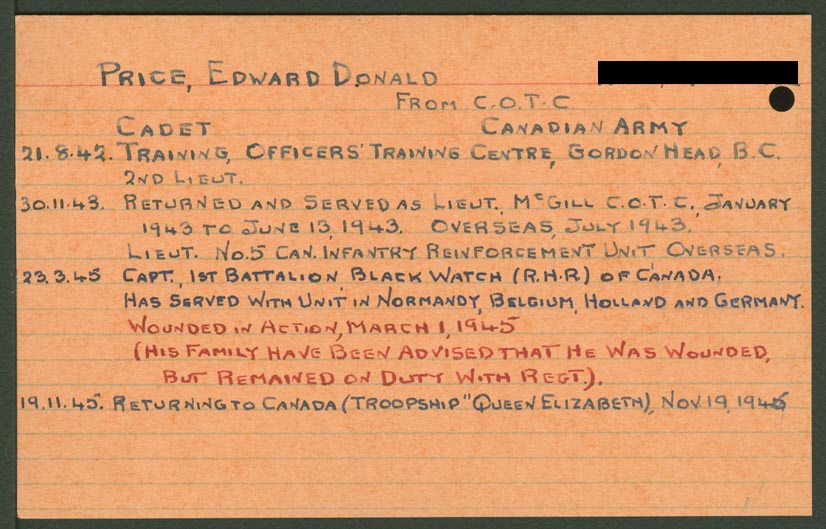 PRICE, EDWARD DONALD
FROM C.O.T.C.
CADET CANADIAN ARMY
21.8.42. TRAINING, OFFICERS' TRAINING CENTRE, GORDON HEAD, B.C.
2ND LIEUT.
30.11.43. RETURNED AND SERVED AS LIEUT., McGILL C.O.T.C., JANUARY
1943 TO JUNE 13, 1943. OVERSEAS, JULY 1943.
LIEUT. No.5 CAN. INFANTRY REINFORCEMENT UNIT OVERSEAS.
23.3.45 CAPT., 1ST BATTALION BLACK WATCH (R.H.R.) OF CANADA.
HAS SERVED WITH UNIT IN NORMANDY, BELGIUM, HOLLAND AND GERMANY.
WOUNDED IN ACTION, MARCH 1, 1945
(HIS FAMILY HAVE BEEN ADVISED THAT HE WAS WOUNDED,
BUT REMAINED ON DUTY WITH REGT.).
19.11.45. RETURNING TO CANADA (TROOPSHIP "QUEEN ELIZABETH), NOV. 19, 1945